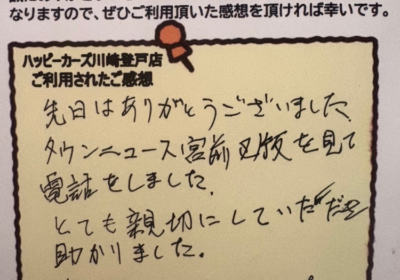 なりますので、ぜひご利用頂いた感想を頂ければ幸いです。
ハッピーカーズ川崎登戸店
ご利用されたご感想
先日はありがとうございました、
タウンニュース宮前区版を見て
電話をしました。
とても親切にしていただき
助かりました。